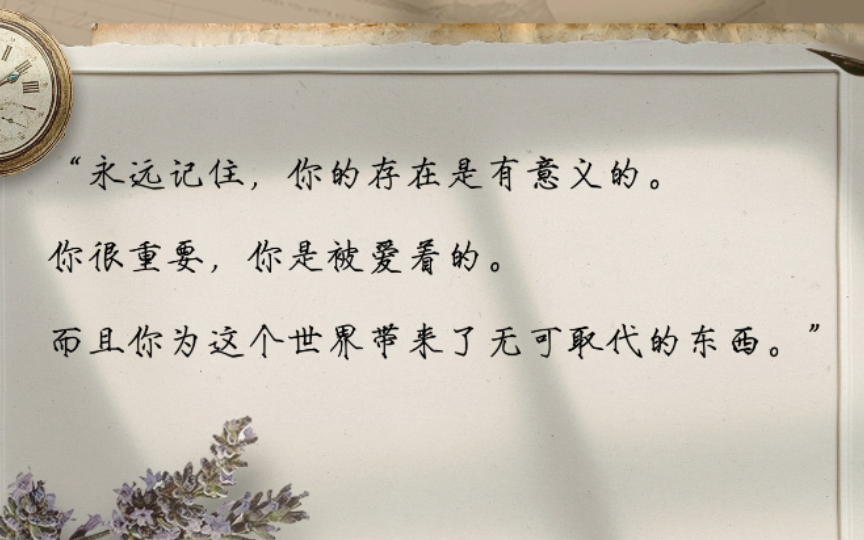 “永远记住，你的存在是有意义的。
你很重要，你是被爱着的。
而且你为这个世界带来了无可取代的东西。”